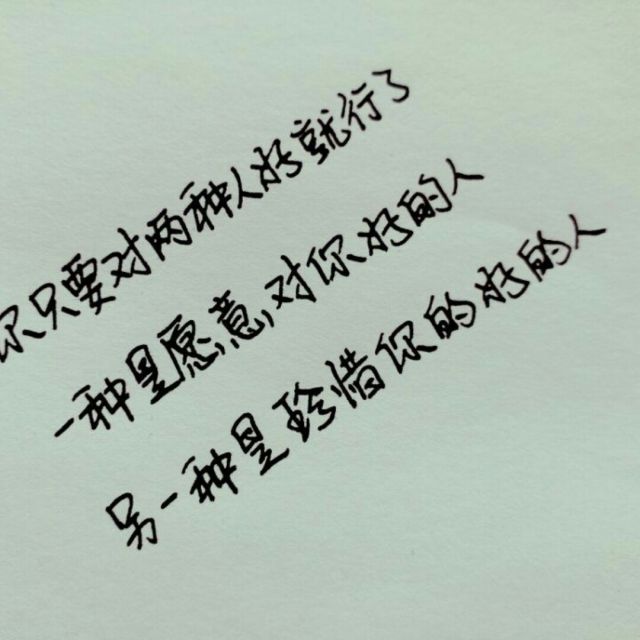 你只要对两种人好就行了
一种是愿意对你好的人
另一种是珍惜你的好的人